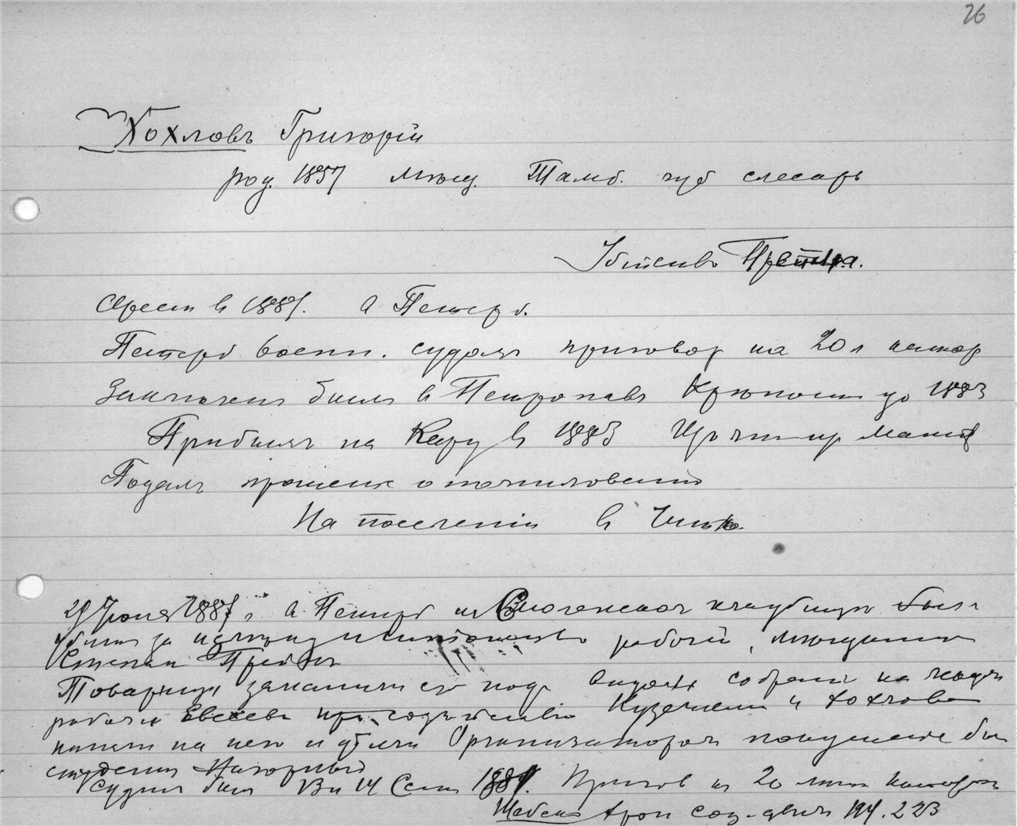 26
Хохловъ Григорій
род. 1857 мѣщ. Тамб. губ слесарь
Убійство Прейма.
Арест в 1881. в Петерб.
Петерб воен. судом приговор на 20 л катор
Заключен был в Петропав Крѣпости до 1883
Прибылъ на Кару в 1883
Подалъ прошение о помиловании
На поселеніи в Читѣ.
29 Июня 1881 г в Петерб на Смоленском кладбище был
убит за рабочий, мещанин
Степан Прейм
Товарищи заманили его под видом собрания на
рабочи Евсеев при содействіи Кузюмкин и Хохлова
напали на него и убили Организатором покушения был
студент Нагорный
Судим был 13 и 14 Сент 1881. Пригов на 20 лет каторги
194. 223